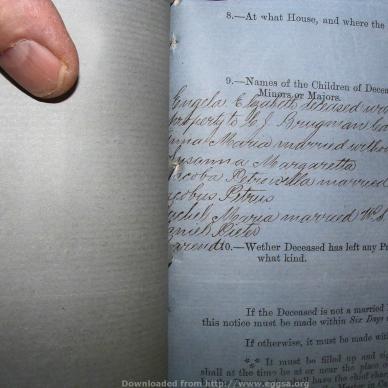 8.—At what House, and where the
9.—Names of the Children of Decea
Minors or Majors.
Angela Elizabeth deceased
property to G J Brugman
Anna Maria married witho
Susanna Margaretta
Jacoba Petronella married
Jacobus Petrus
Rachel Maria married W S
Daniel Pieter
Barend
10.—Wether Deceased has left any Pr
what kind.
If the Deceased is not a married
this notice must be made within Six Days
If otherwise, it must be made wit
*** It must be filled up and sig
shall at the time be at or near the place
shall have the chief char
Downloaded from http://www.eggsa.org